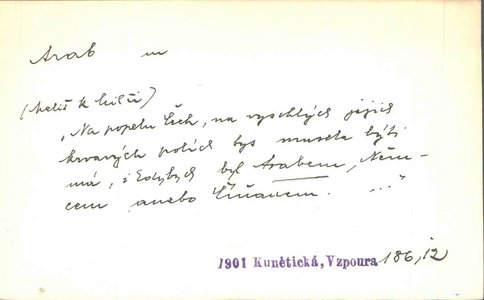 Arab m
(Meliš k Liťči)
„Na popelu Čech, na vyschlých jejich
krvavých polích bys musela býti
má, i kdybych byl Arabem, Něm-
cem anebo Číňanem. ..."
1901 Kunětická, Vzpoura 186,12